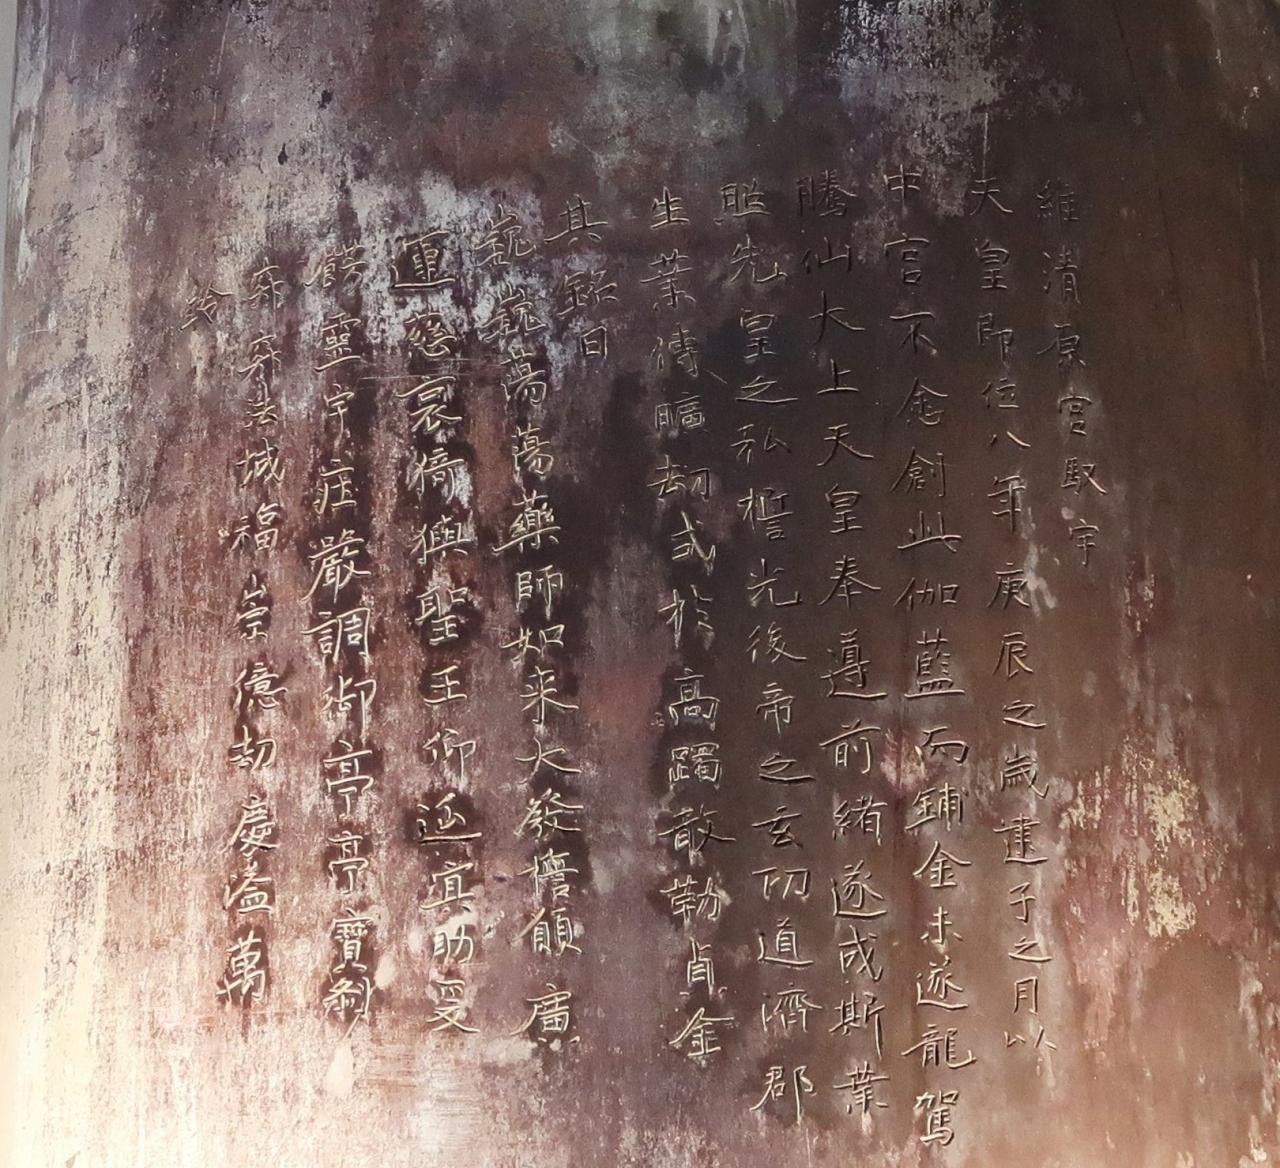 維清原宮馭宇
天皇即位八年庚辰之歳建子之月以
中宮不悆創此伽藍而鋪金未遂龍駕
騰仙大上天皇奉遵前緒遂成斯業
照先皇之弘誓光後帝之玄功道濟郡
生業傳曠劫式於高躅敢勒貞金
其銘曰
巍巍蕩蕩藥師如来大發擔願廣
運慈哀猗㺞聖王仰延冥助爰
餝靈宇庄嚴調御亭亭寶刹
寂寂法城福崇億劫慶溢萬
齡